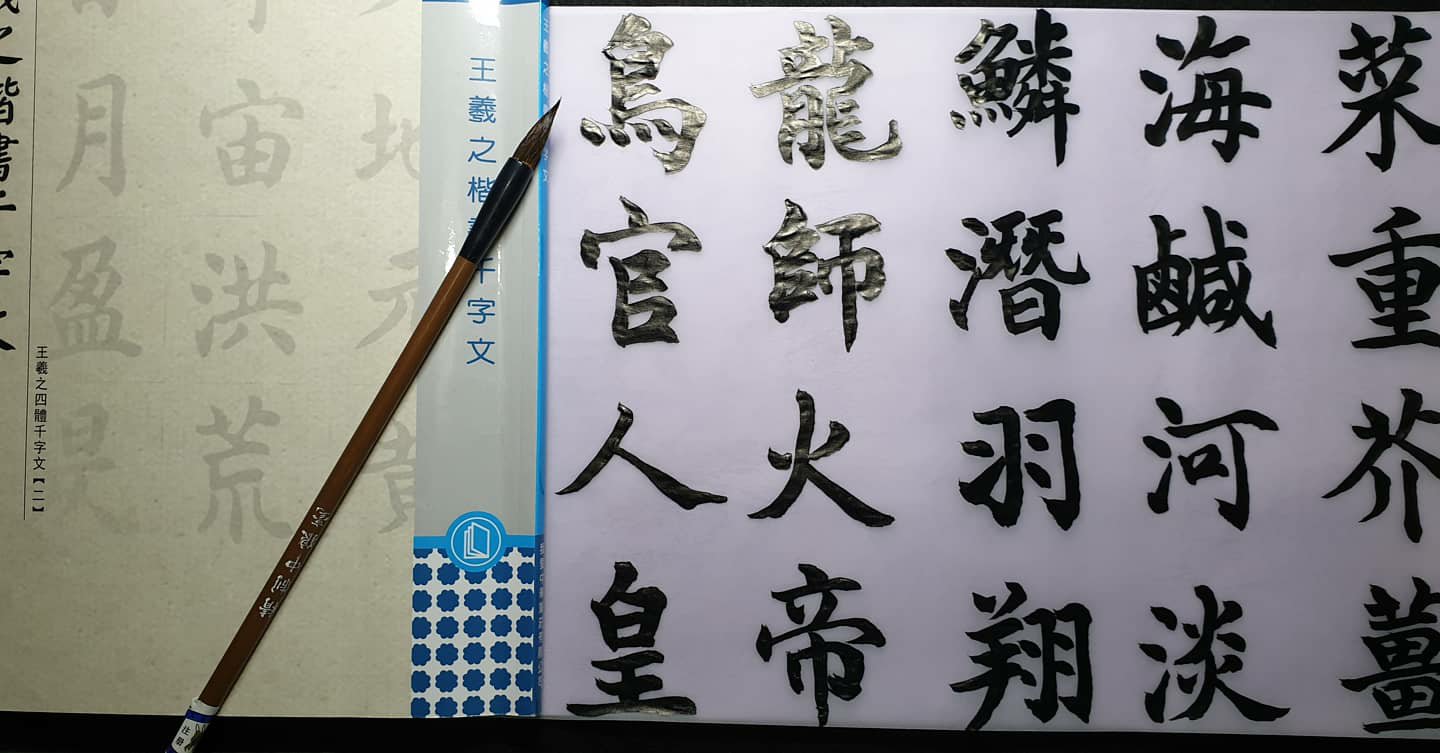 菜重芥薑
海鹹河淡
鱗潛羽翔
龍師火帝
鳥官人皇
王羲之楷書千字文
地元黃
宙洪荒
月盈昃
王羲之四體千字文【二】
之楷書千字文